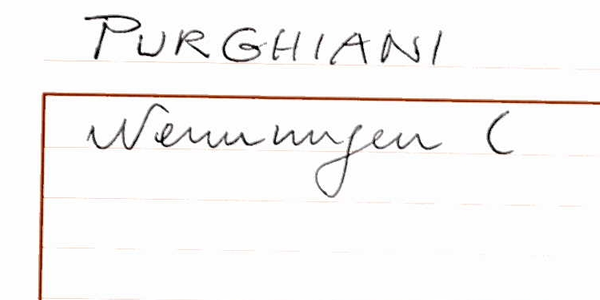 PURGHIANI
Nennungen (